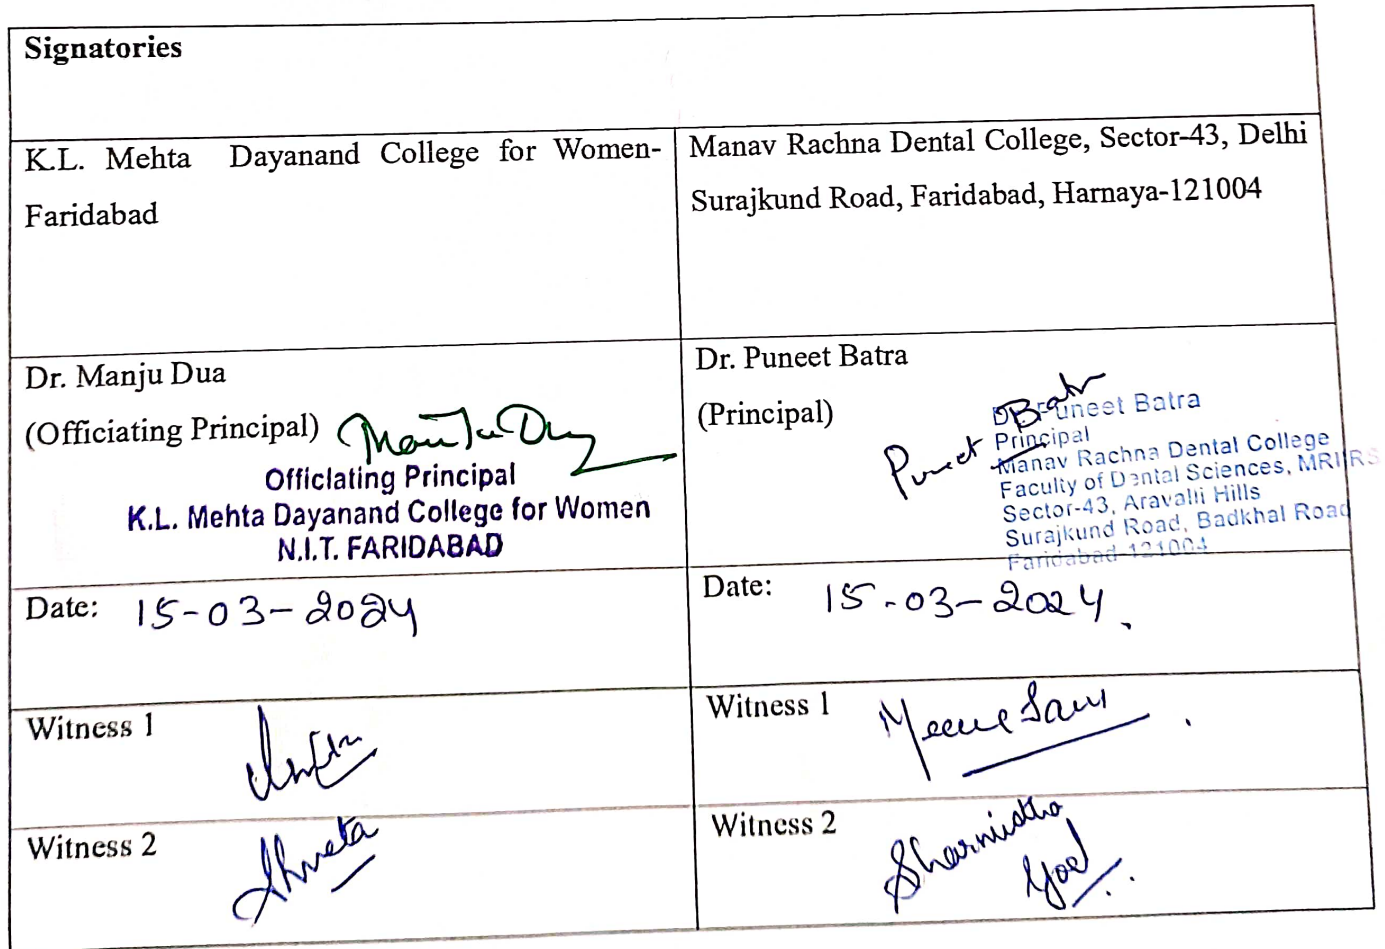 Signatories
K.L. Mehta Dayanand College for Women-
Faridabad
Manav Rachna Dental College, Sector-43, Delhi
Surajkund Road, Faridabad, Harnaya-121004
Dr. Manju Dua
(Officiating Principal) Manju Dua
Officiating Principal
K.L. Mehta Dayanand College for Women
N.I.T. FARIDABAD
Dr. Puneet Batra
(Principal)
Puneet Batra
Dr. Puneet Batra
Principal
Manav Rachna Dental College
Faculty of Dental Sciences, MRIIRS
Sector-43, Aravalli Hills
Surajkund Road, Badkhal Road
Faridabad-121004
Date: 15-03-2024
Date: 15-03-2024.
Witness 1
Witness 1
Witness 2 Shweta
Witness 2 Sharmistha
Goel